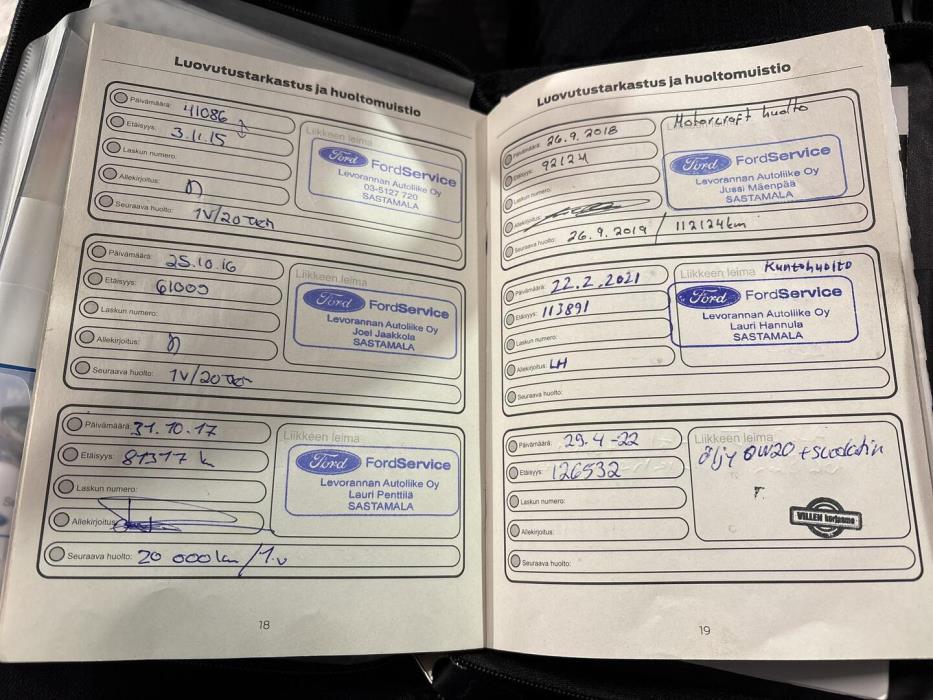 Luovutustarkastus ja huoltomuistio
Päivämäärä: 41086
Etäisyys: 3.11.15
Laskun numero:
Allekirjoitus:
Seuraava huolto: 1V/20
Liikkeen leima
Ford FordService
Levorannan Autoliike Oy
03-5127 720
SASTAMALA
Päivämäärä: 25.10.16
Etäisyys: 61009
Laskun numero:
Allekirjoitus:
Seuraava huolto: 1V/20
Liikkeen leima
Ford FordService
Levorannan Autoliike Oy
Joel Jaakkola
SASTAMALA
Päivämäärä: 31.10.17
Etäisyys: 81317 k
Laskun numero:
Allekirjoitus:
Seuraava huolto: 20 000km/1.v
Liikkeen leima
Ford FordService
Levorannan Autoliike Oy
Lauri Penttilä
SASTAMALA
18
Luovutustarkastus ja huoltomuistio
Päivämäärä: 26.9.2018
Etäisyys: 92124
Laskun numero:
Allekirjoitus:
Seuraava huolto: 26.9.2019 / 112124km
Motorcraft huolto
Ford FordService
Levorannan Autoliike Oy
Jussi Mäenpää
SASTAMALA
Päivämäärä: 22.2.2021
Etäisyys: 113891
Laskun numero:
Allekirjoitus: LH
Seuraava huolto:
Liikkeen leima Kuntohuolto
Ford FordService
Levorannan Autoliike Oy
Lauri Hannula
SASTAMALA
Päivämäärä: 29.4-22
Etäisyys: 126532
Laskun numero:
Allekirjoitus:
Seuraava huolto:
Liikkeen leima
öljy 0W20 + suodatin
T.
VILLEN korjaamo
19